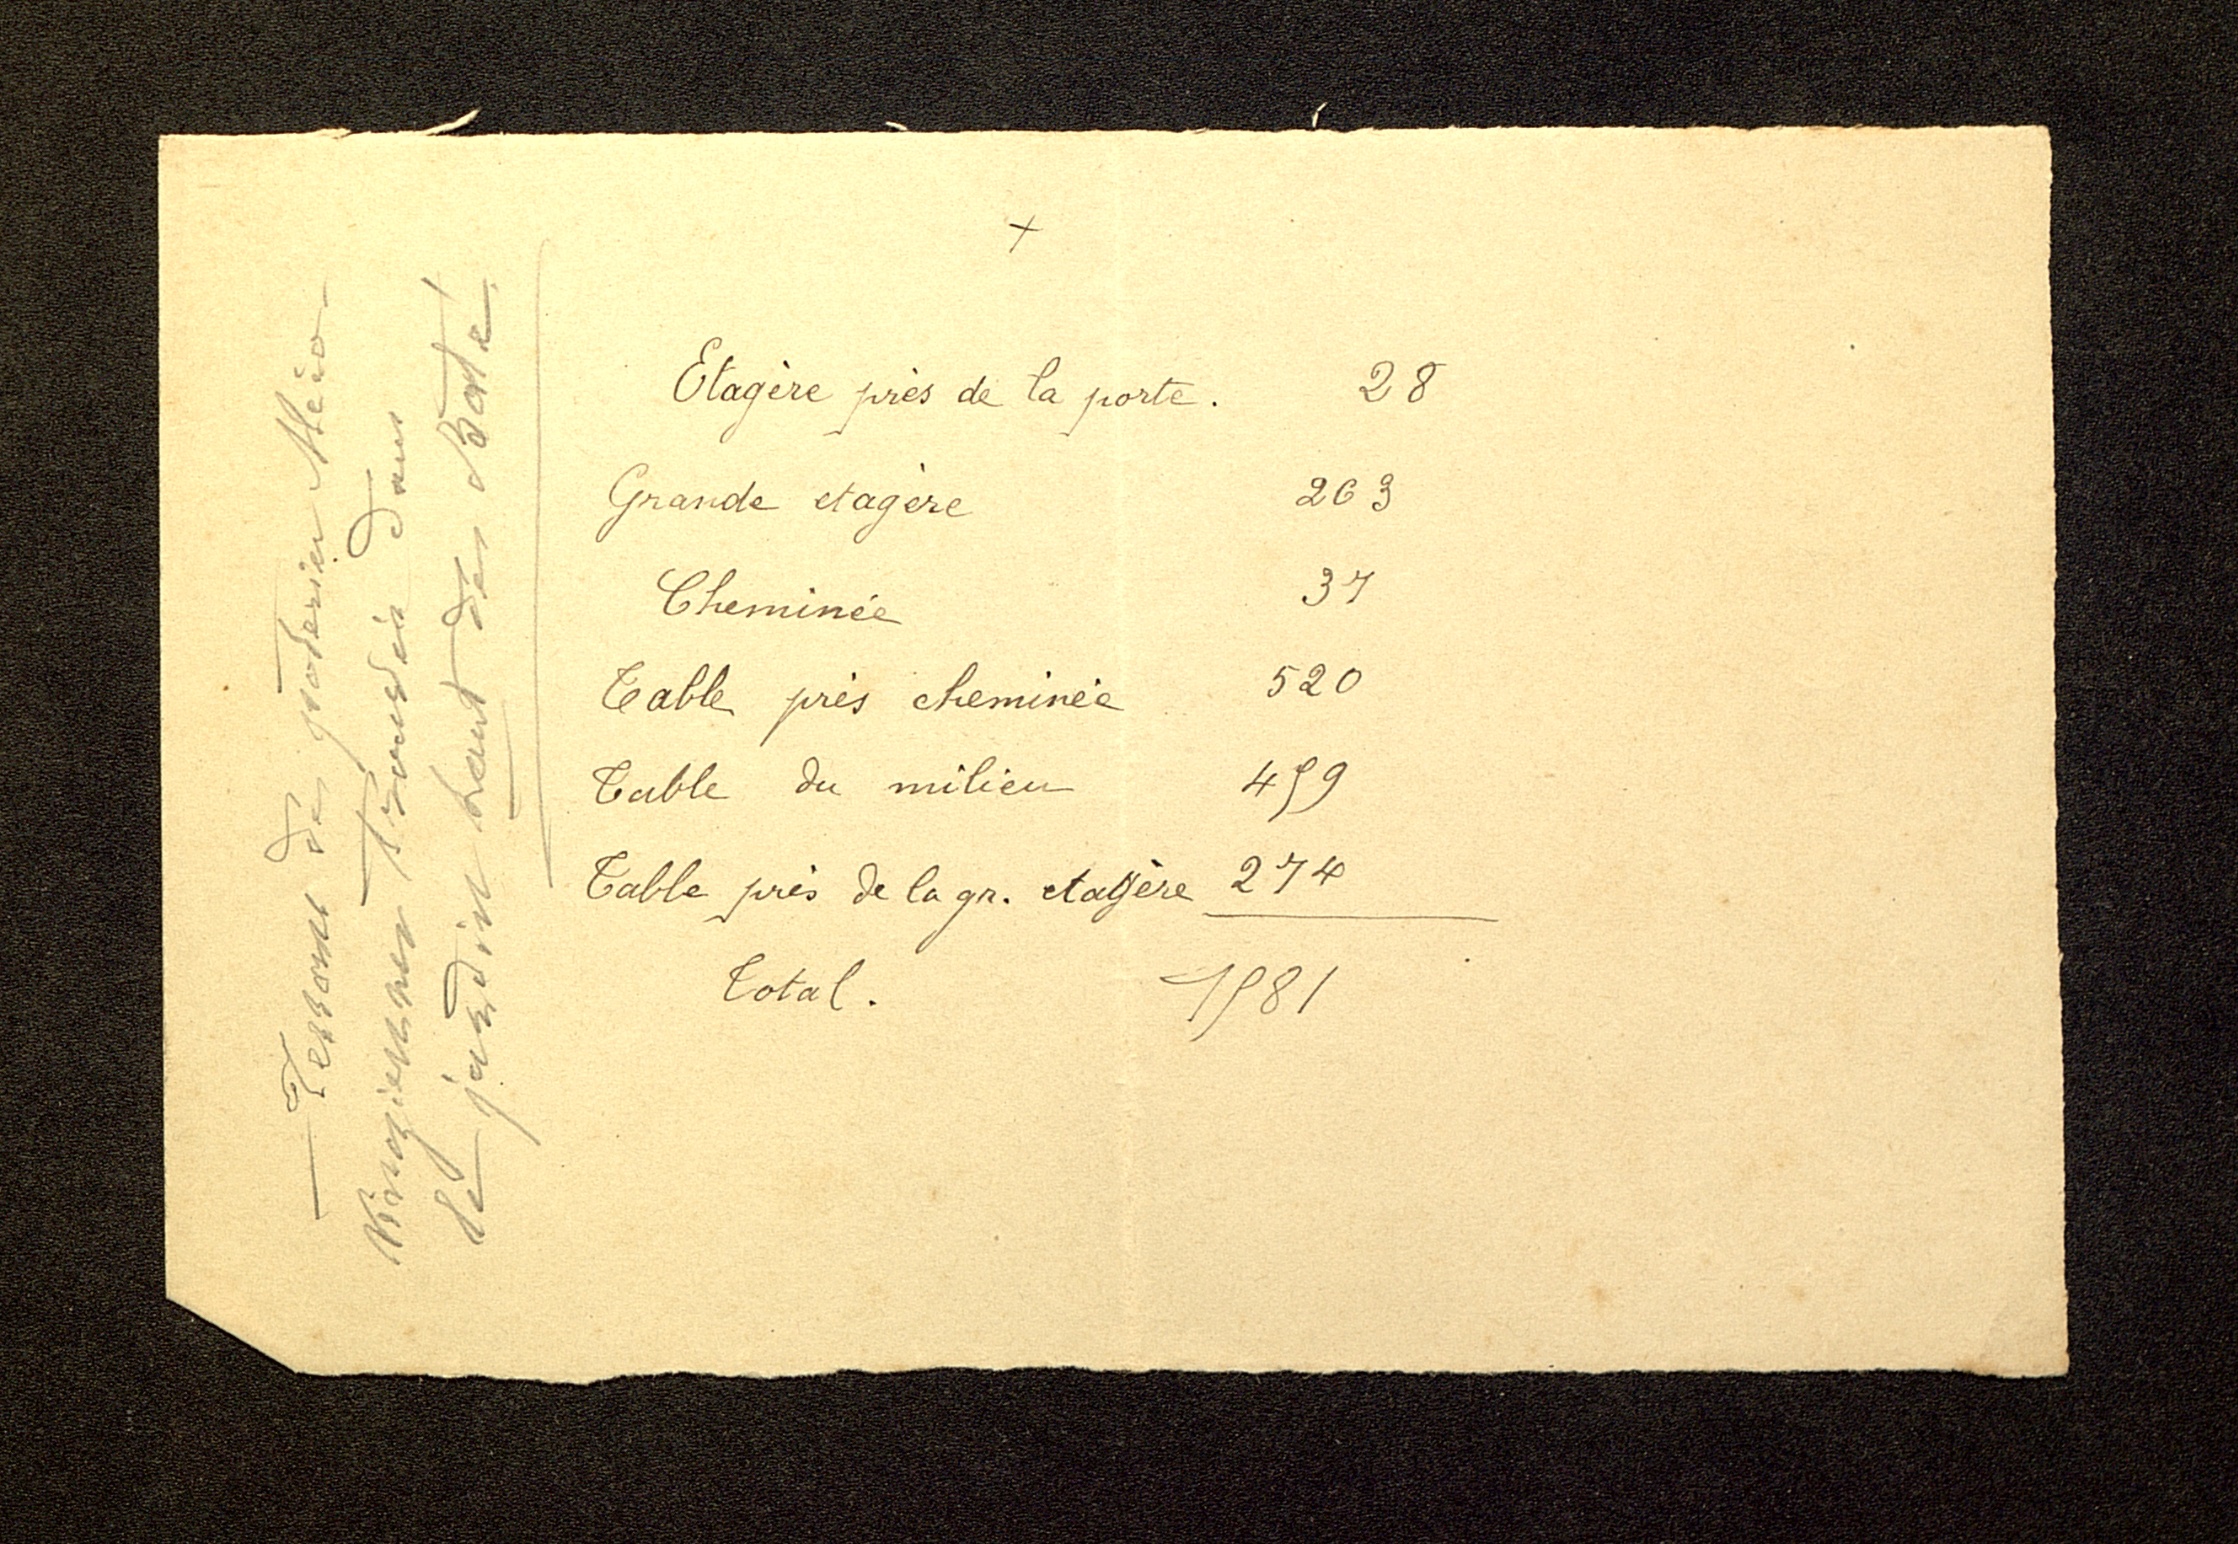 — Tessons des poteries Méro-
vingiennes trouvées dans
le jardin haut des
+
Etagère près de la porte. 28
Grande etagère 263
Cheminée 37
Table près cheminée 520
Table du milieu 459
Table près de la gr. etagère 274
Total. 1581